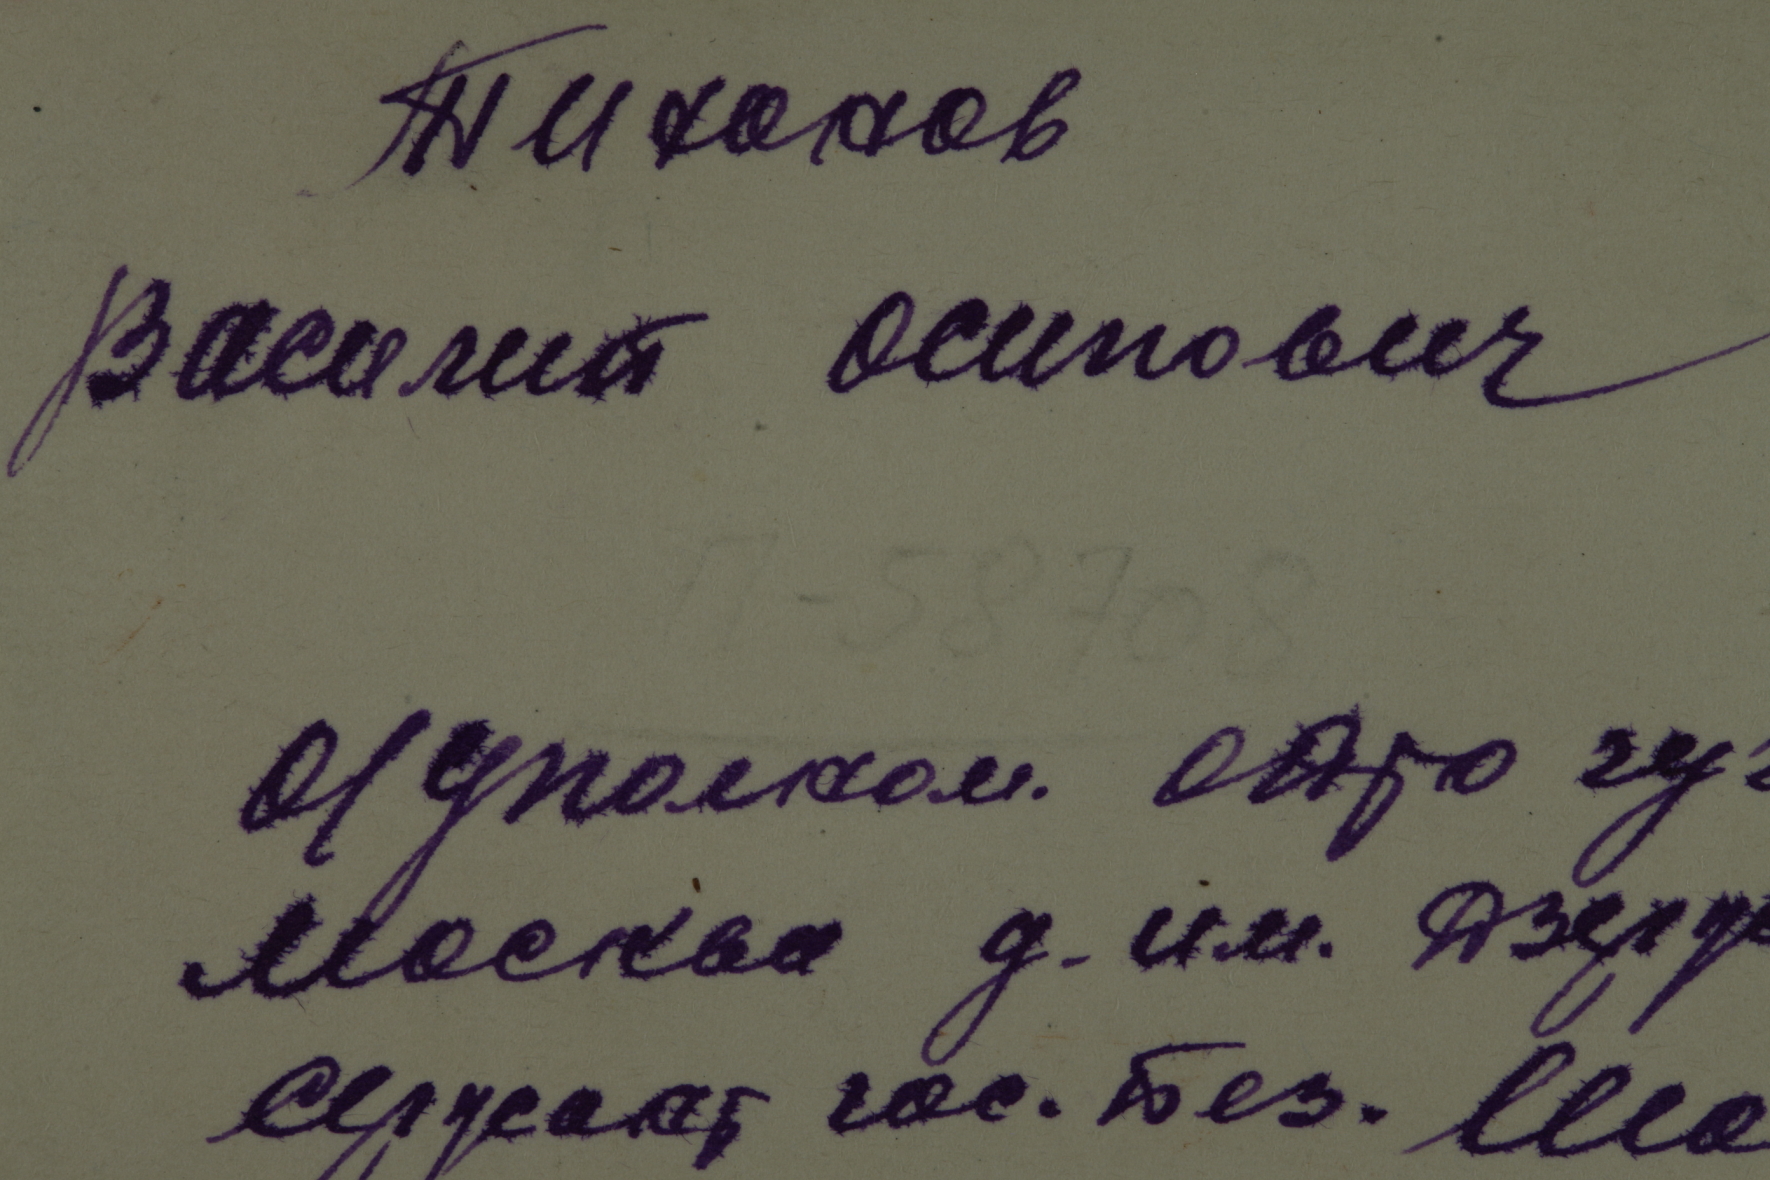 Тихонов
Василий Осипович
П-58708
О/уполком. ОДТО
Москва д. им.
Сержант гос. без.